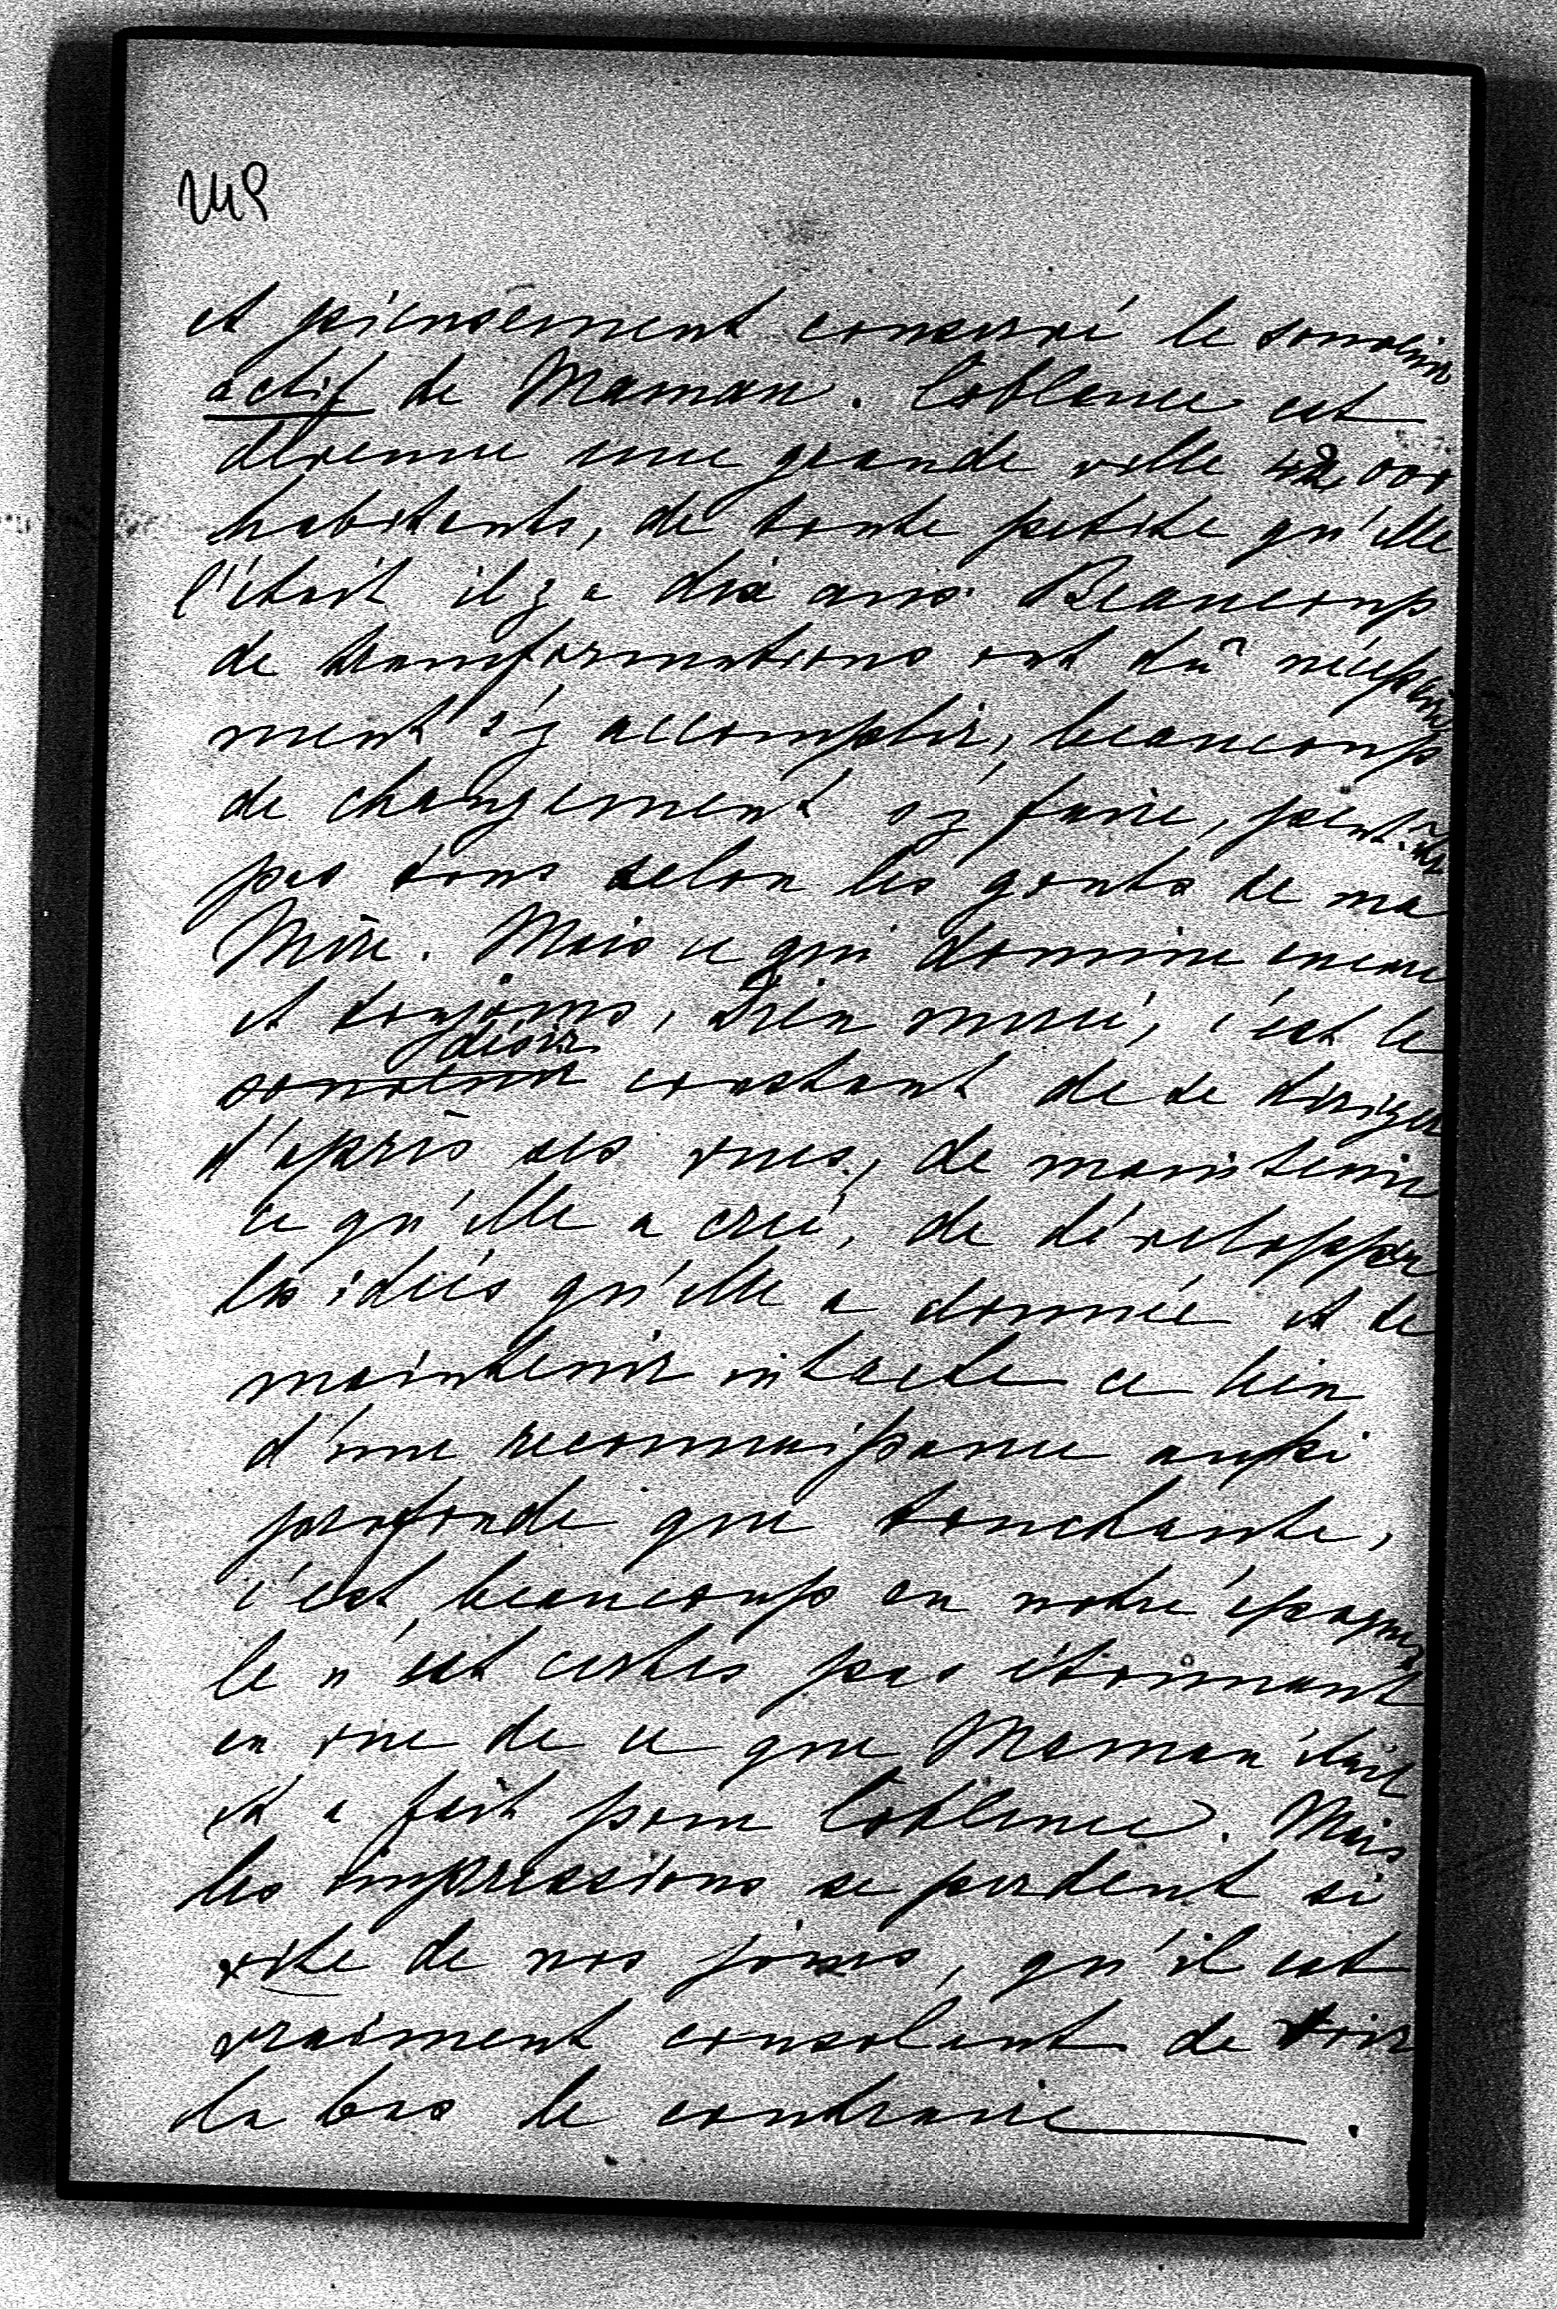 et pieusement conservé le souvenir
actif de Maman. Coblence est
devenue une grande ville 42,000
habitants, de toute petite qu'elle
l'était il y a dix ans. Beaucoup
de transformations ont dû nécessaire
ment s'y accomplir, beaucoup
de changement s'y faire, peut-être
pas tous selon les gouts de ma
Mère. Mais ce qui domine encore
et toujours, Dieu merci, c'est le
désir
souvenir constant de se diriger
d'après ses vues, de maintenir
ce qu'elle a créé, de développer
les idées qu'elle a donnée et de
maintenir intacte ce lien
d'une reconnaissance aussi
profonde que touchante,
c'est beaucoup en notre époque,
Ce n'est certes pas étonnant
en vue de ce que Maman était
et a fait pour Coblence. Mais
les impressions se perdent si
vite de nos jours, qu'il est
vraiment consolant de voir
là bas le contraire.